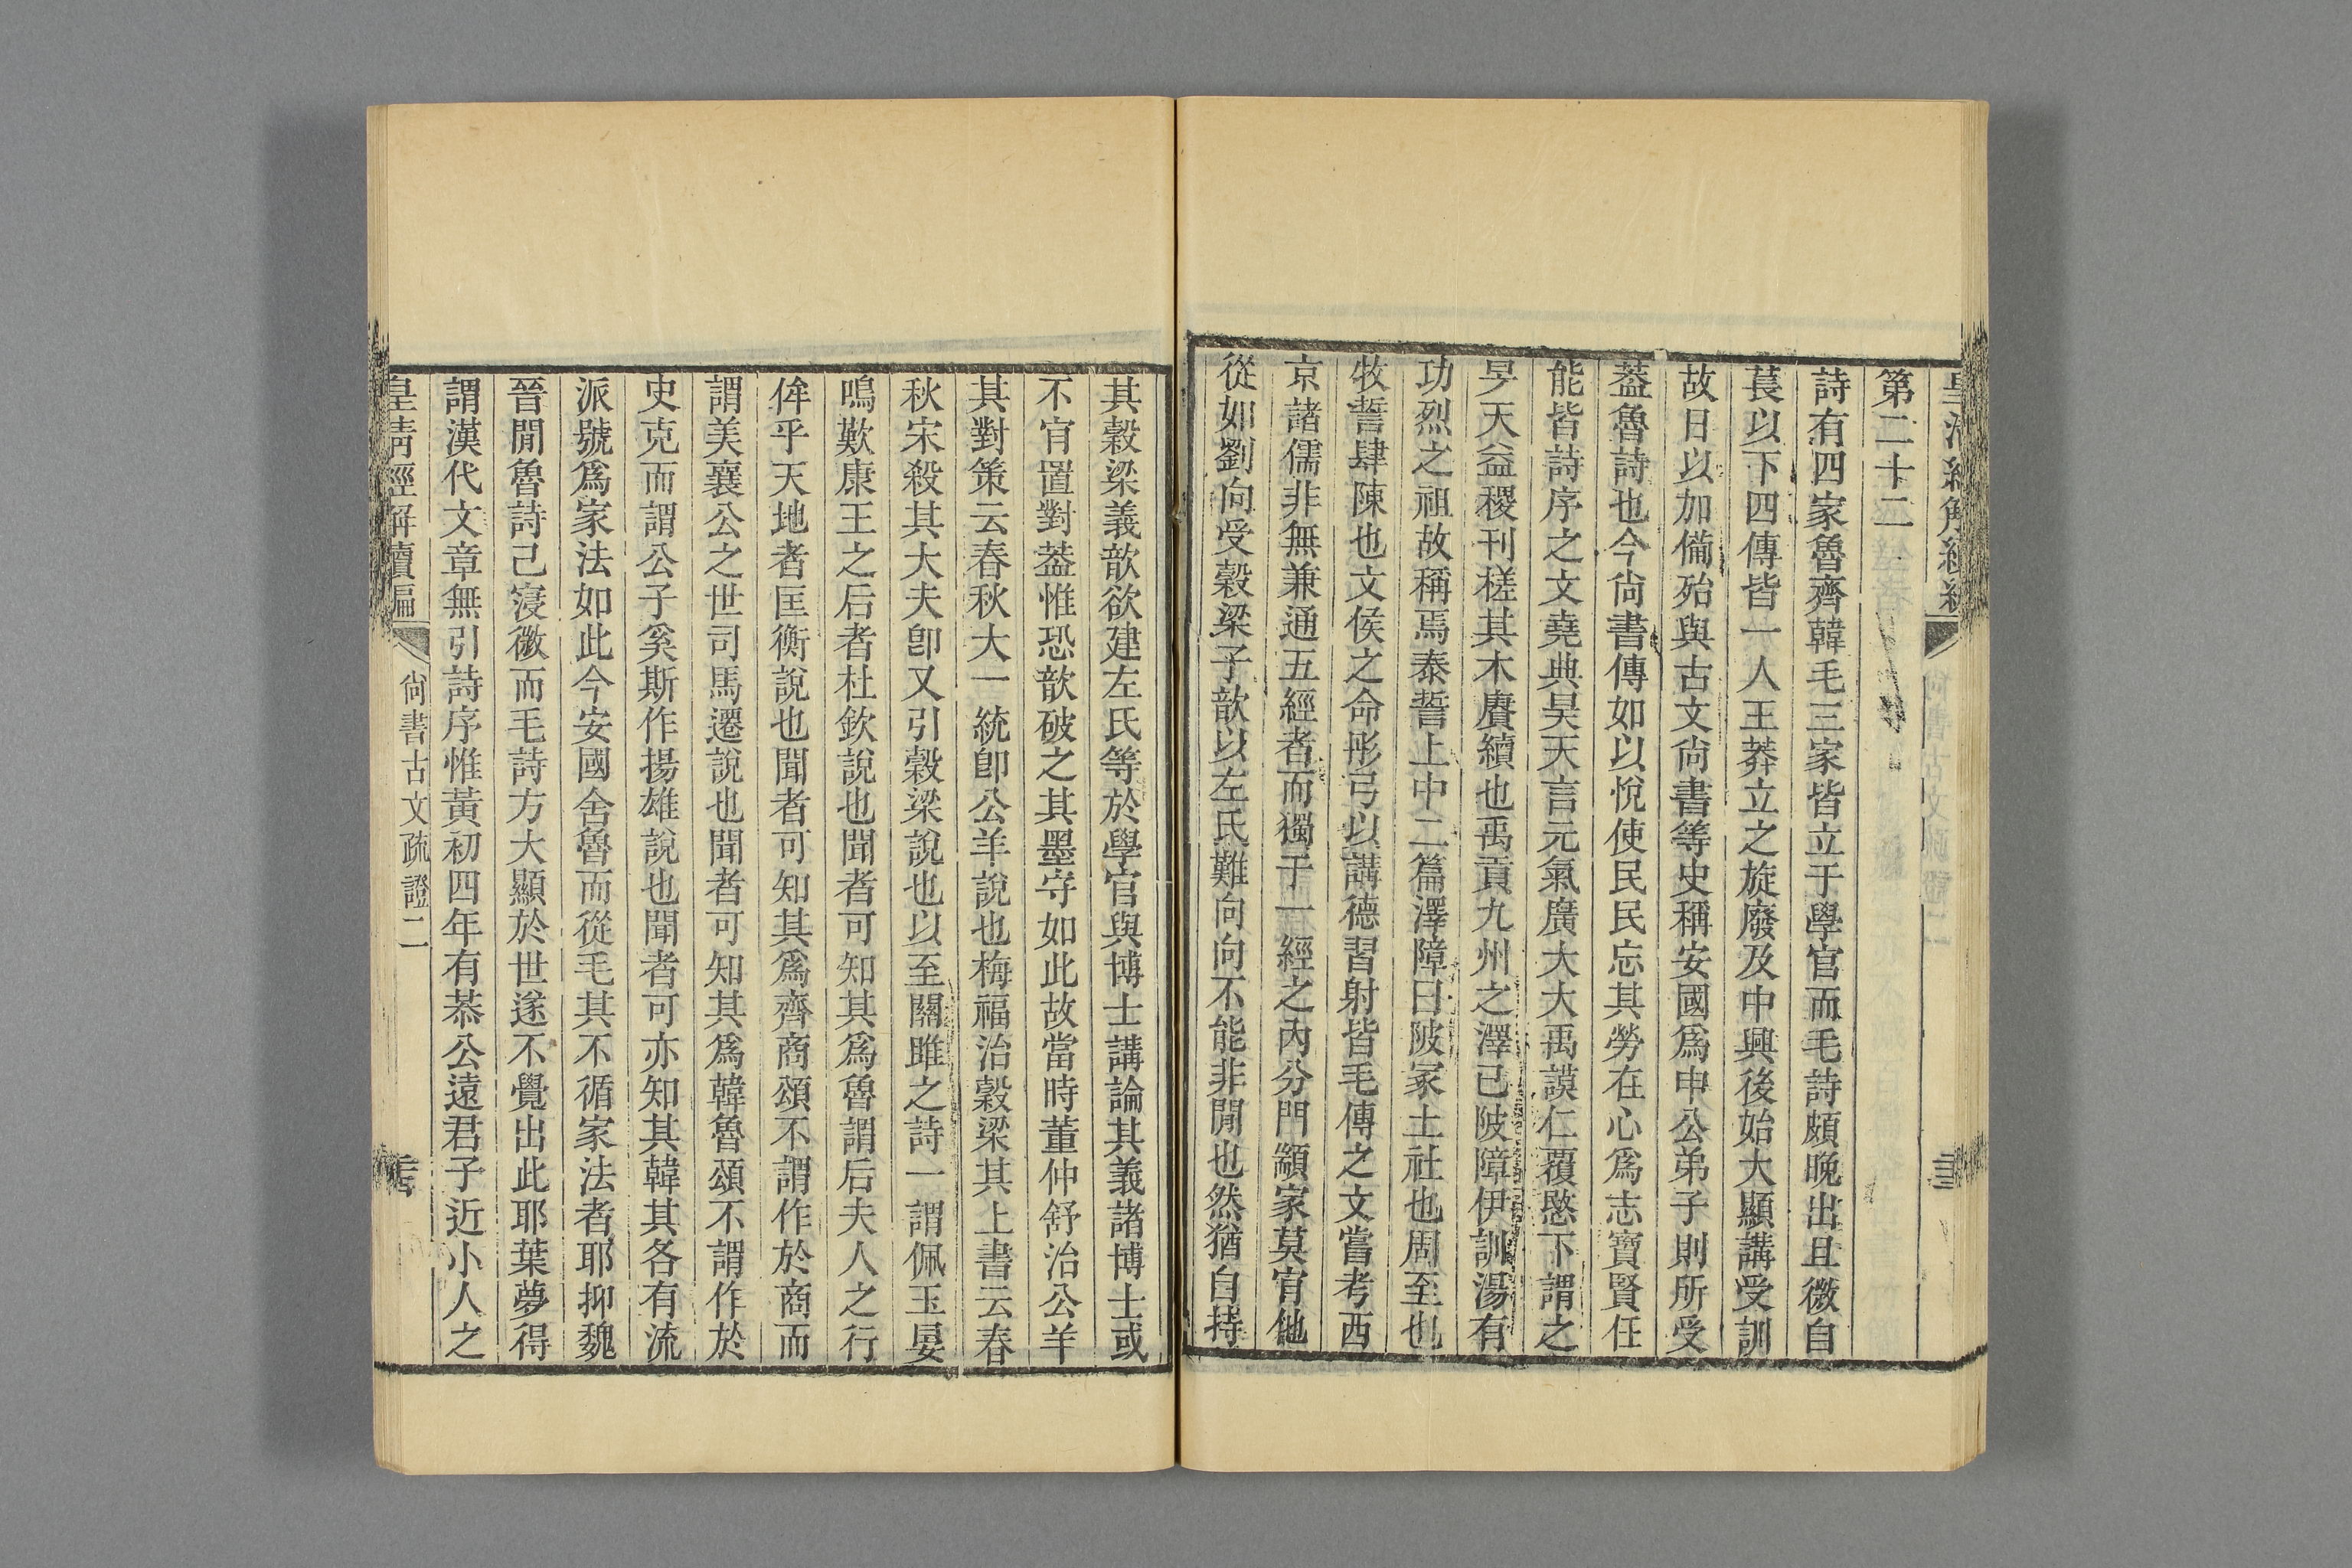 第二十二
詩有四家魯齊韓毛三家皆立于學官而毛詩頗晚出且微自
萇以下四傳皆一人王莽立之旋廢及中興後始大顯講受訓
故日以加僃殆與古文尙書等史稱安國爲申公弟子則所受
葢魯詩也今尙書傳如以悅使民民忘其勞在心爲志寶賢任
能皆詩序之文堯典昊天言元氣廣大大禹謨仁覆愍下謂之
旻天益稷刊槎其木賡續也禹貢九州之澤已陂障伊訓湯有
功烈之祖故稱焉泰誓上中二篇澤障曰陂冢土社也周至也
牧誓肆陳也文侯之命彤弓以講德習射皆毛傳之文嘗考西
京諸儒非無兼通五經者而獨于一經之內分門顓家莫肯他
從如劉向受穀梁子歆以左氏難向向不能非閒也然猶自持
其穀梁義歆欲建左氏等於學官與博士講論其義諸博士或
不肯置對葢惟恐歆破之其墨守如此故當時董仲舒治公羊
其對策云春秋大一統卽公羊說也梅福治穀梁其上書云春
秋宋殺其大夫卽又引穀梁說也以至關雎之詩一謂佩玉晏
鳴歎康王之后者杜欽說也聞者可知其爲魯謂后夫人之行
侔乎天地者匡衡說也聞者可知其爲齊商頌不謂作於商而
謂美襄公之世司馬遷說也聞者可知其爲韓魯頌不謂作於
史克而謂公子奚斯作揚雄說也聞者可亦知其韓其各有流
派號爲家法如此今安國舍魯而從毛其不循家法者耶抑魏
晉閒魯詩已寖微而毛詩方大顯於世遂不覺出此耶葉夢得
謂漢代文章無引詩序惟黃初四年有恭公遠君子近小人之
皇淸經解續編 尙書古文疏證二